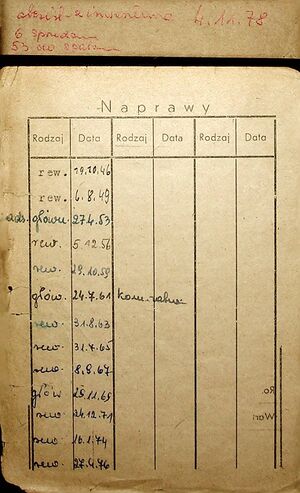 4.11.78
6 sprzedano
53 do
Naprawy
Rodzaj Data Rodzaj Data Rodzaj Data
rew. 19.10.46
rew. 6.8.49
główn. 27.4.53
rew. 5.12.56
rew. 29.10.59
głów. 24.7.61 kom.
rew. 31.8.63
rew. 31.7.65
rew. 8.9.67
głów 25.11.69
rew. 24.12.71
rew. 16.1.74
rew. 27.4.76
Ro.
Wari